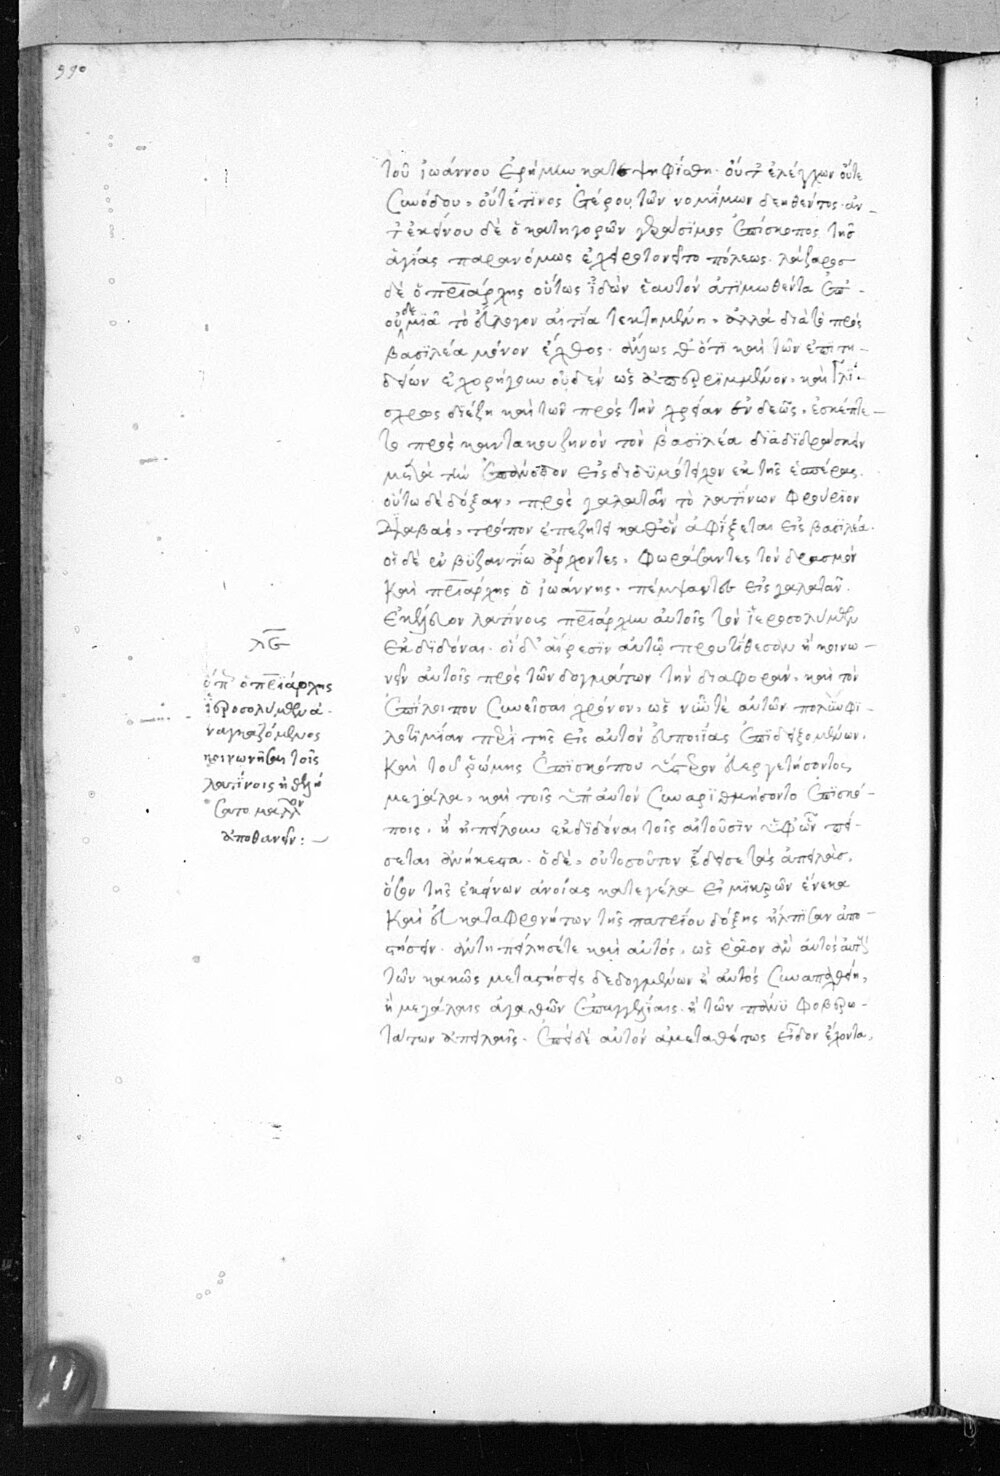 990
τοῦ ἰωάννου ἐρήμην κατεψηφίσθη. οὔτ' ἐλέγχων οὔτε
συνόδου, οὔτέ τινος ἑτέρου τῶν νομίμων δεηθέντος. ἀν_
τ' ἐκείνου δὲ ὁ κατηγορῶν γεράσιμος ἐπίσκοπος τῆς
ἁγίας παρανόμως ἐχειροτονεῖτο πόλεως. λάζαρος
δὲ ὁ πριάρχης οὕτως ἰδὼν ἑαυτὸν ἀτιμωθέντα ἐπ' -
οὐδεμιᾶ τὸ εὔλογον αἰτία κεκτημένη, ἀλλὰ διὰ τὸ πρὸς
βασιλέα μόνον ἔχθος. ἄλλως θ' ὅτι καὶ τῶν ἐπιτη -
δείων ἐχορήγουν οὐδὲν ὡς ἀπερριμμένον, καὶ γλί -
σχρως διέζη καὶ τῶν πρὸς τὴν χρείαν ἐνδεῶς, ἐσκέπτε -
το πρὸς καντακουζηνὸν τὸν βασιλέα διαδιδράσκειν
μετὰ τὴν ἐπάνοδον εἰς διδυμότειχον ἐκ τῆς ἑσπέρας.
οὕτω δὲ δόξαν, πρὸς γαλατᾶν τὸ λατίνων φρούριον
διαβὰς, τρόπον ἐπεζήτει καθ' ὃν ἀφίξεται εἰς βασιλέα.
οἱ δὲ ἐν βυζαντίω ἄρχοντες, φωράσαντες τὸν δρασμὸν
καὶ πριάρχης ὁ ἰωάννης, πέμψαντες εἰς γαλατᾶν.
ἐκέλευον λατίνοις πριάρχην αὐτοῖς τὸν ἱεροσολύμων
ἐκδιδόναι. οἱ δ' αἵρεσιν αὐτῶ προυτίθεσαν ἢ κοινω -
νεῖν αὐτοῖς πρὸς τῶν δογμάτων τὴν διαφορὰν, καὶ τὸν
ἐπίλοιπον συνεῖσαι χρόνον, ὡς νῦν τὲ αὐτῶν πολλὴν φι -
λοτιμίαν περὶ τῆς εἰς αὐτὸν εὐποιΐας ἐπιδειξομένων.
καὶ τοῦ ῥώμης ἐπισκόπου ὕστερον εὐεργετήσοντος
μεγάλα, καὶ τοῖς ὑπ' αὐτὸν συναριθμήσοντο ἐπισκό -
ποις. ἢ ἠπείλουν ἐκδιδόναι τοῖς αἰτοῦσιν ὑφ' ὧν πεί -
σεται ἀνήκεστα. ὁ δὲ, οὐ τοσοῦτον ἔδεισε τὰς ἀπειλὰς,
ὅσον τῆς ἐκείνων ἀνοίας κατεγέλα εἰ μικρῶν ἕνεκα
καὶ εὐκαταφρονήτων τῆς πατρίου δόξης ἤλπισαν ἀπο -
στήσειν. ἀντηπείλησέ τε καὶ αὐτὸς, ὡς ῥᾶον ἂν αὐτὸς αὐτοὺς
τῶν κακῶς μεταστήσει δεδογμένων ἢ αὐτὸς συναπαχθείη,
ἢ μεγάλαις ἀγαθῶν ἐπαγγελίαις. ἢ τῶν πάνυ φοβερω -
τάτων ἀπειλαῖς. ἐπεὶ δὲ αὐτὸν ἀμεταθέτως εἶδον ἔχοντα,
λς
ὅτι ὁ πριάρχης
ἱεροσολύμων ἀ -
ναγκαζόμενος
κοινωνῆσαι τοῖς
λατίνοις ἠθελή
σατο μᾶλλον
ἀποθανεῖν : ~